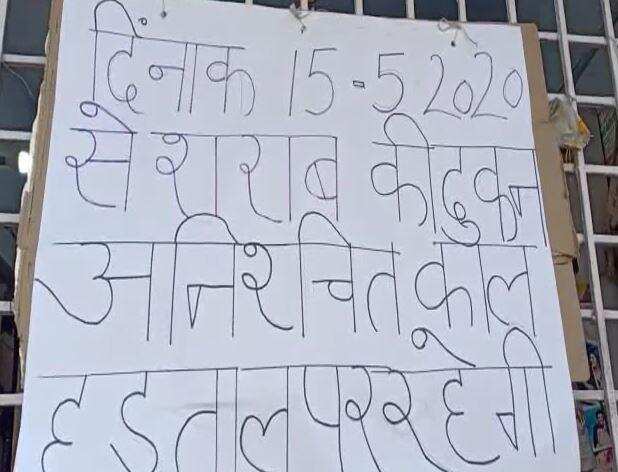 दिंनाक 15-5 2020
से शराब की दुकन
अनिश्चित काल
हडताल पर रहेगी